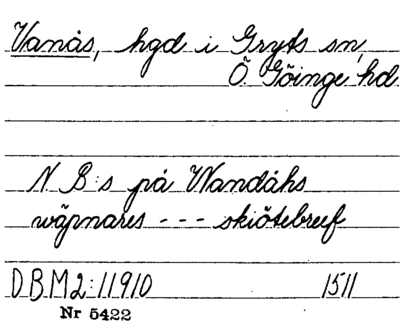 Vanås, hgd i Gryts sn,
Ö Göinge hd
N B:s på Wandåhs
wäpnares --- skiötebreef
DBM2:11910 1511
Nr 5422